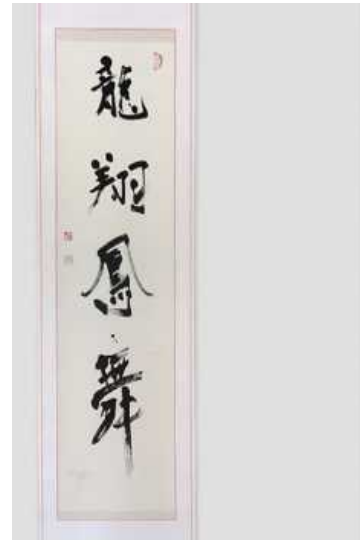 龍翔鳳舞